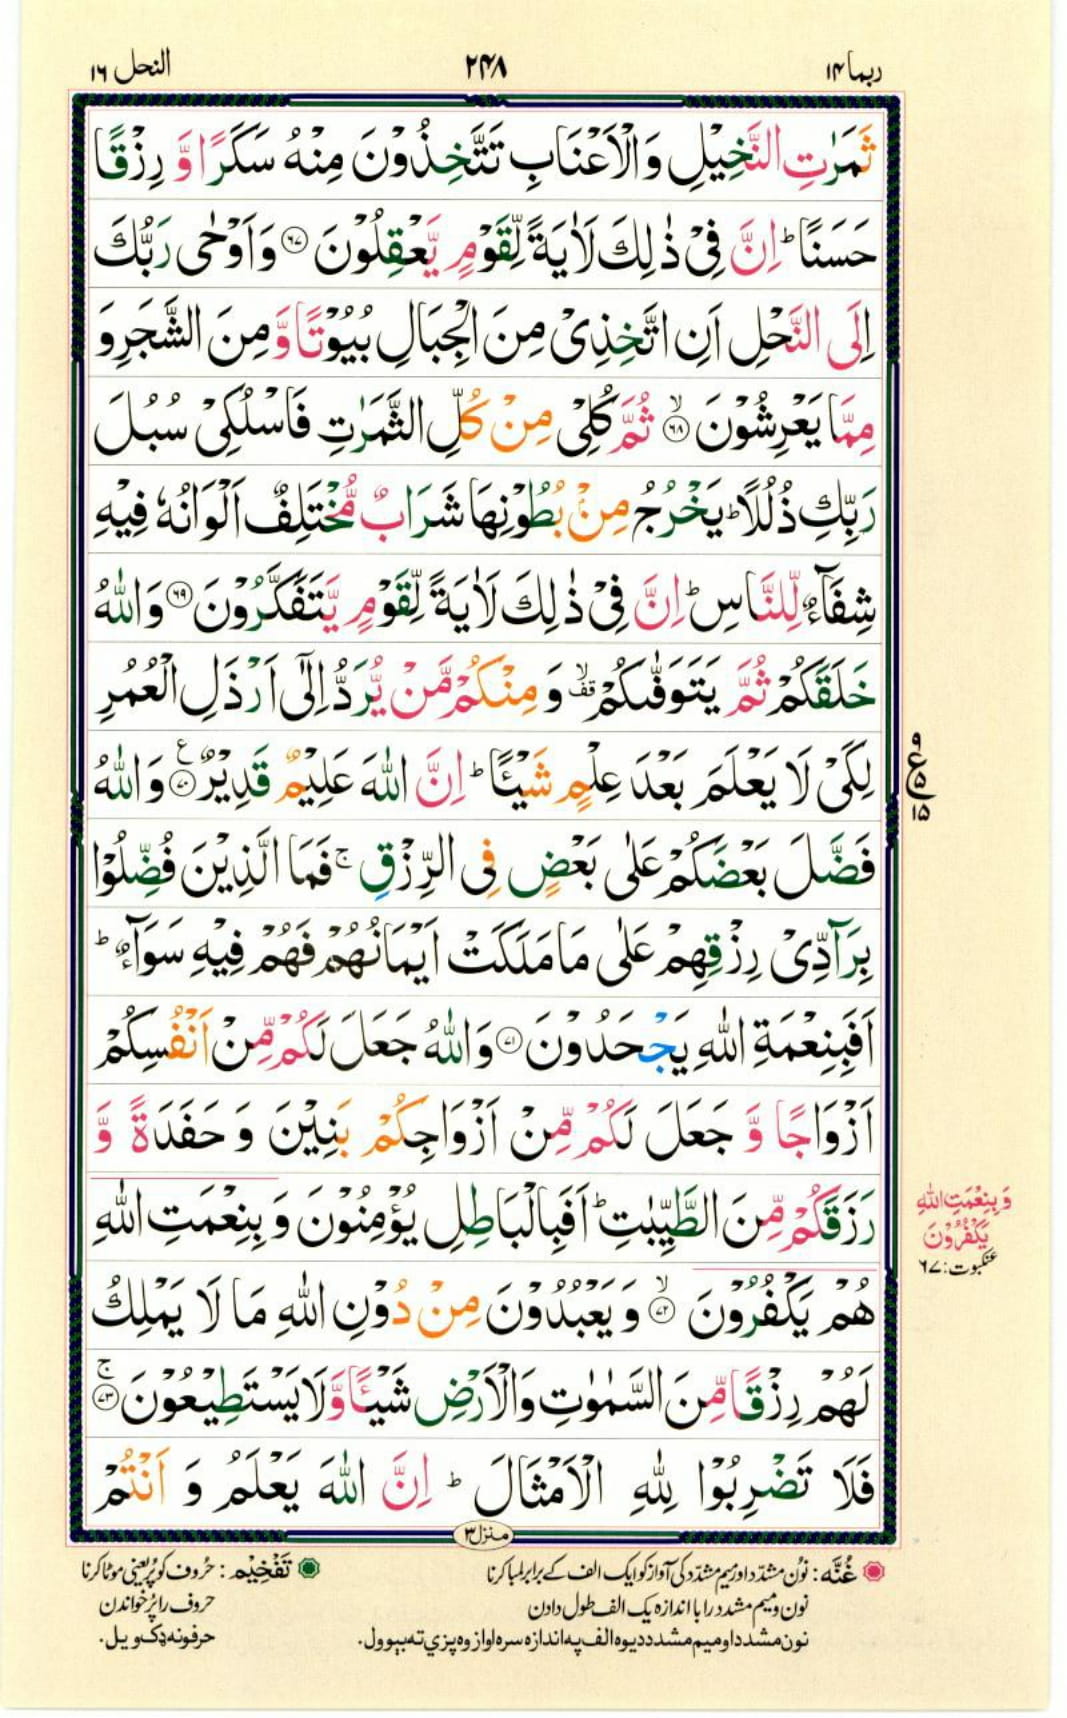 ربما ۱۴
۲۴۸
النحل ۱۶
ثَمَرٰتِ النَّخِيْلِ وَالْاَعْنَابِ تَتَّخِذُوْنَ مِنْهُ سَكَرًا وَّ رِزْقًا
حَسَنًا ؕ اِنَّ فِيْ ذٰلِكَ لَاٰيَةً لِّقَوْمٍ يَّعْقِلُوْنَ ۶۷ وَاَوْحٰى رَبُّكَ
اِلَى النَّحْلِ اَنِ اتَّخِذِيْ مِنَ الْجِبَالِ بُيُوْتًا وَّ مِنَ الشَّجَرِ وَ
مِمَّا يَعْرِشُوْنَ ۶۸ۙ ثُمَّ كُلِيْ مِنْ كُلِّ الثَّمَرٰتِ فَاسْلُكِيْ سُبُلَ
رَبِّكِ ذُلُلًا ؕ يَخْرُجُ مِنْۢ بُطُوْنِهَا شَرَابٌ مُّخْتَلِفٌ اَلْوَانُهٗ فِيْهِ
شِفَآءٌ لِّلنَّاسِ ؕ اِنَّ فِيْ ذٰلِكَ لَاٰيَةً لِّقَوْمٍ يَّتَفَكَّرُوْنَ ۶۹ وَاللّٰهُ
خَلَقَكُمْ ثُمَّ يَتَوَفّٰىكُمْ ۙقف وَ مِنْكُمْ مَّنْ يُّرَدُّ اِلٰٓى اَرْذَلِ الْعُمُرِ
لِكَيْ لَا يَعْلَمَ بَعْدَ عِلْمٍ شَيْـًٔا ؕ اِنَّ اللّٰهَ عَلِيْمٌ قَدِيْرٌ ۷۰ع وَاللّٰهُ
فَضَّلَ بَعْضَكُمْ عَلٰى بَعْضٍ فِي الرِّزْقِ ۚ فَمَا الَّذِيْنَ فُضِّلُوْا
بِرَآدِّيْ رِزْقِهِمْ عَلٰى مَا مَلَكَتْ اَيْمَانُهُمْ فَهُمْ فِيْهِ سَوَآءٌ ؕ
اَفَبِنِعْمَةِ اللّٰهِ يَجْحَدُوْنَ ۷۱ وَاللّٰهُ جَعَلَ لَكُمْ مِّنْ اَنْفُسِكُمْ
اَزْوَاجًا وَّ جَعَلَ لَكُمْ مِّنْ اَزْوَاجِكُمْ بَنِيْنَ وَ حَفَدَةً وَّ
رَزَقَكُمْ مِّنَ الطَّيِّبٰتِ ؕ اَفَبِالْبَاطِلِ يُؤْمِنُوْنَ وَ بِنِعْمَتِ اللّٰهِ
هُمْ يَكْفُرُوْنَ ۷۲ۙ وَ يَعْبُدُوْنَ مِنْ دُوْنِ اللّٰهِ مَا لَا يَمْلِكُ
لَهُمْ رِزْقًا مِّنَ السَّمٰوٰتِ وَالْاَرْضِ شَيْـًٔا وَّ لَا يَسْتَطِيْعُوْنَ ۷۳ۚ
فَلَا تَضْرِبُوْا لِلّٰهِ الْاَمْثَالَ ؕ اِنَّ اللّٰهَ يَعْلَمُ وَ اَنْتُمْ
۹
ع ۵
۱۵
وَ بِنِعْمَتِ اللّٰهِ
يَكْفُرُوْنَ
عنکبوت: ۶۷
منزل ۳
غُنَّه: نوُن مشدّد اور میم مشدّد کی آواز کو ایک الف کے برابر لمبا کرنا
نون و میم مشدد را با اندازه یک الف طول دادن
نون مشدد او میم مشدد دیوه الف په اندازه سره اواز وه پزې ته بېوول.
تَفْخِیْم: حُروف کو پُر یعنی موٹا کرنا
حروف را پُر خواندن
حرفونه ډک ویل.